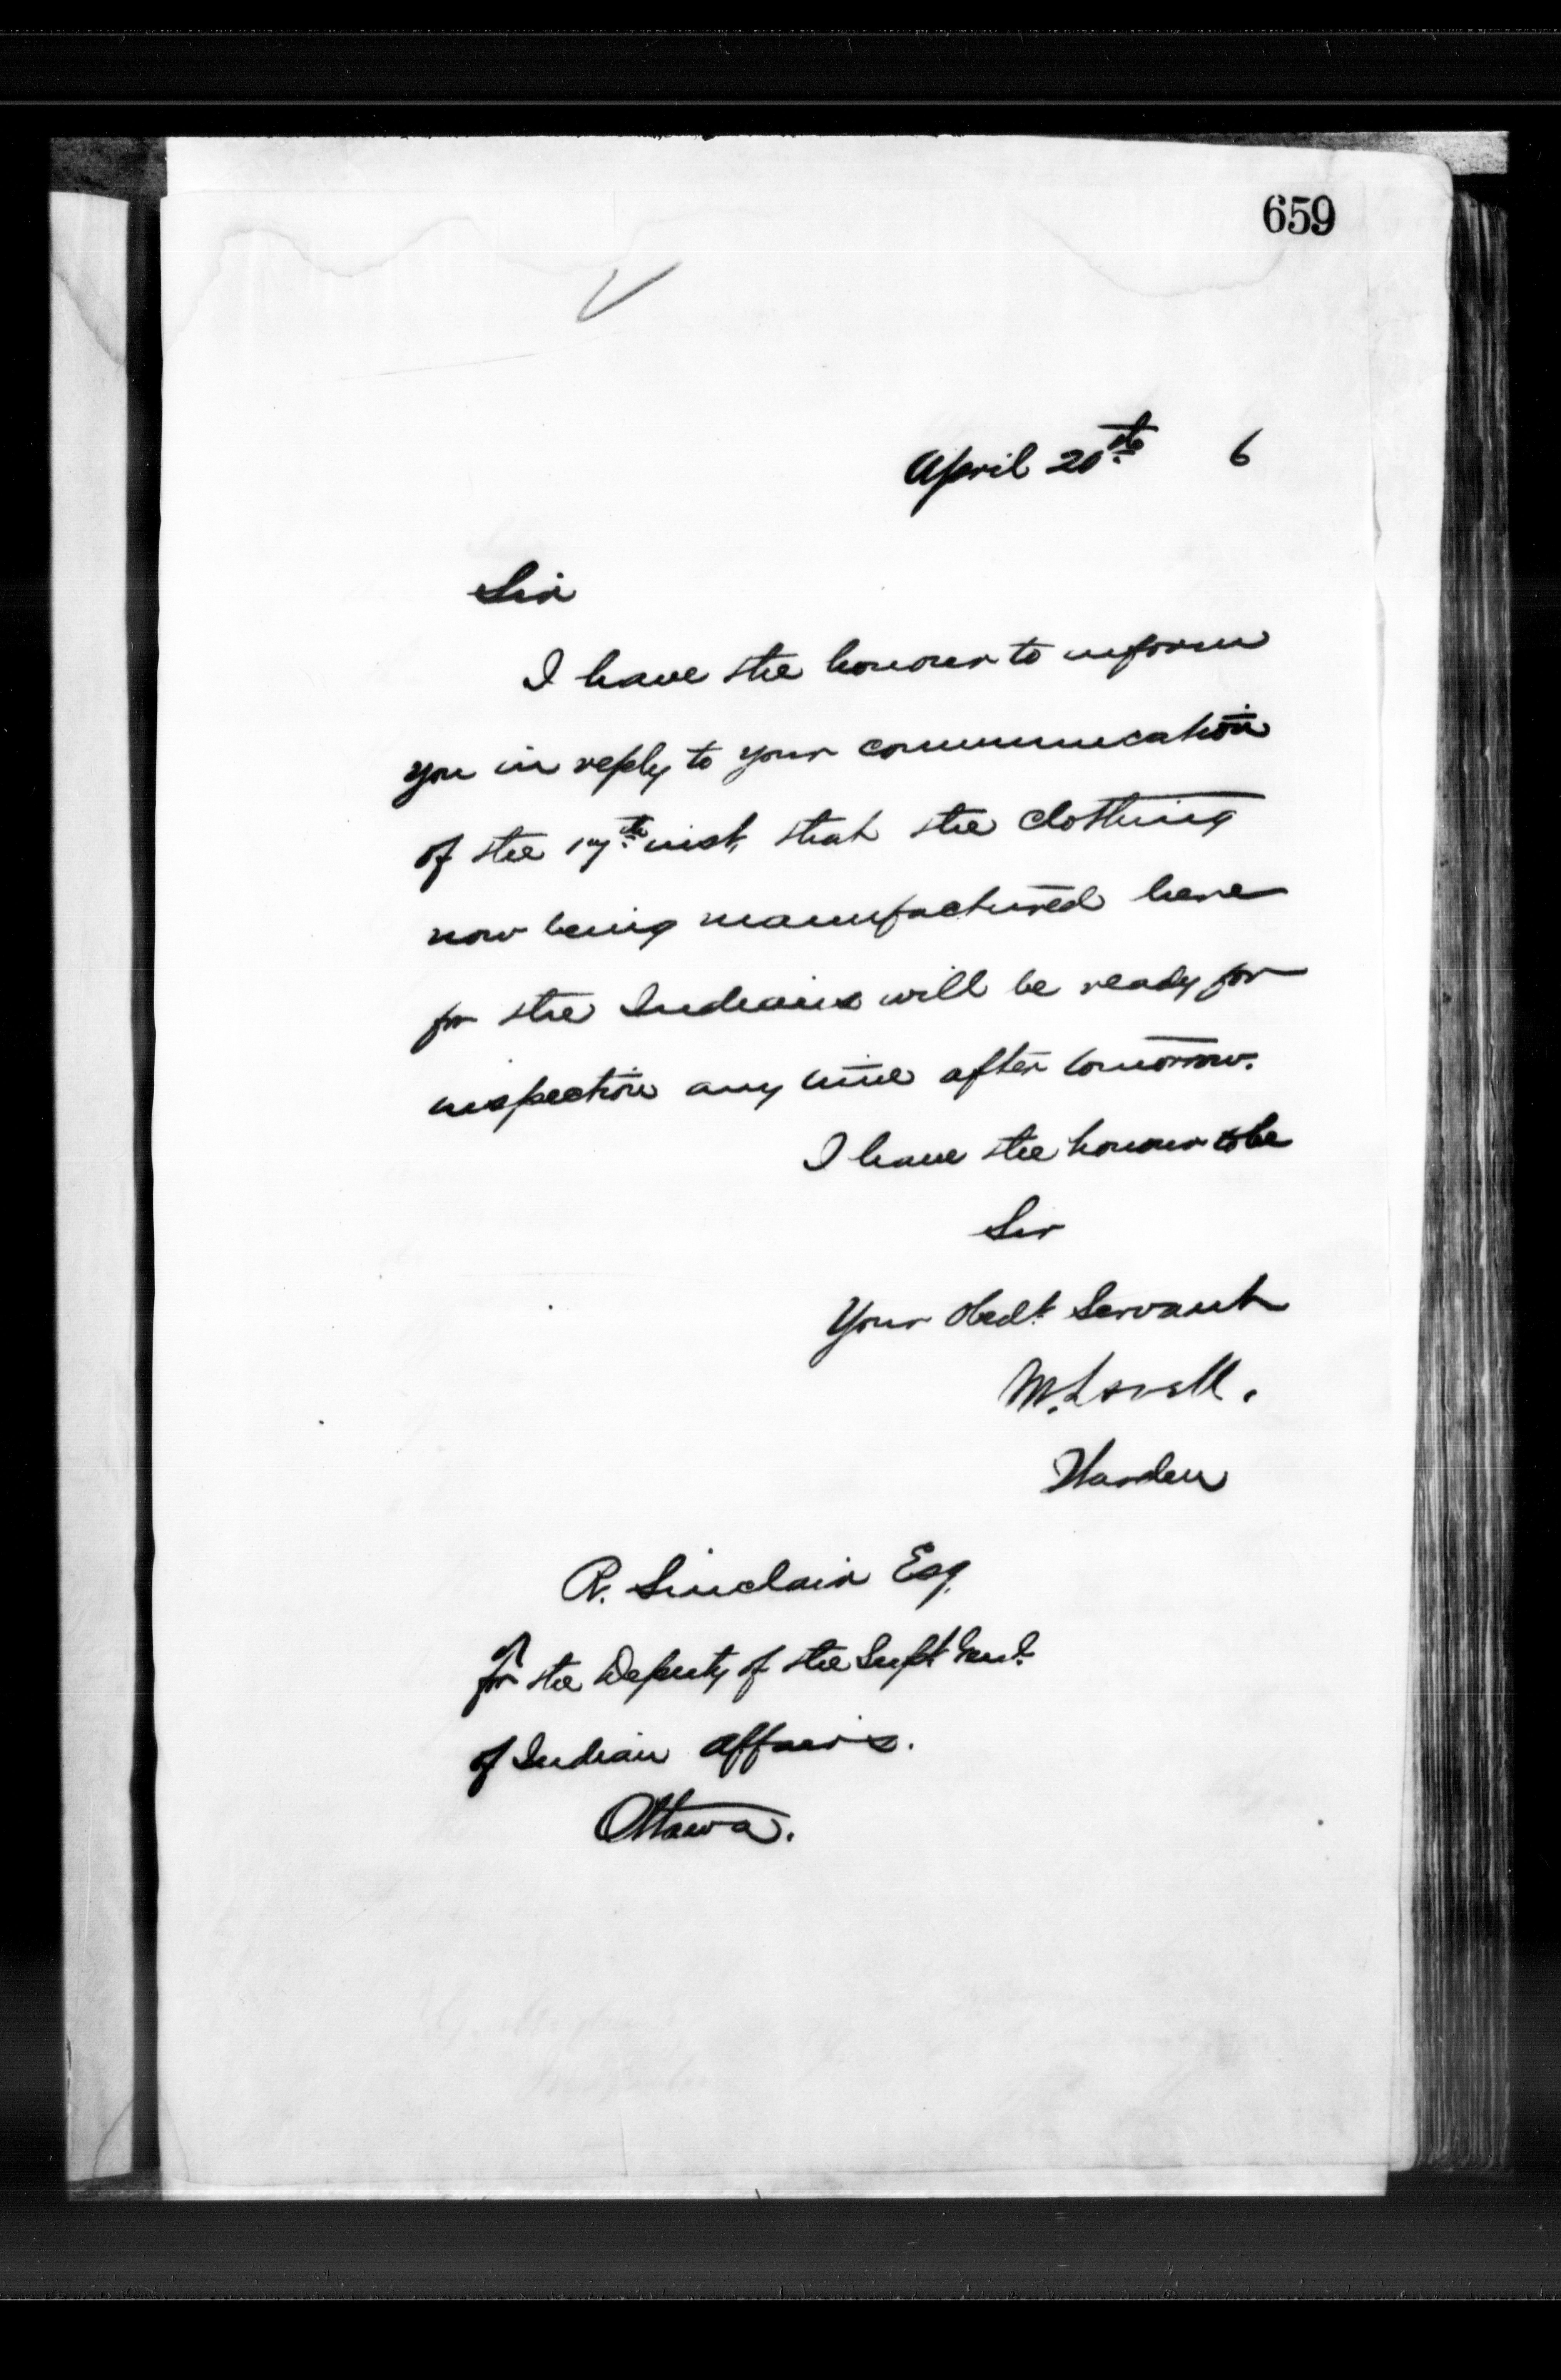 659
April 20th 6
Sir
I have the honour to inform
you in reply to your communication
of the 17th inst, that the clothing
now being manufactured here
for the Indians will be ready for
inspection any time after tomorrow.
I have the honour to be
Sir
Your Obedt Servant
M. Lavell.
Warden
R. Sinclair Esq.
for the Deputy of the Supt Genl.
of Indian Affairs.
Ottawa.